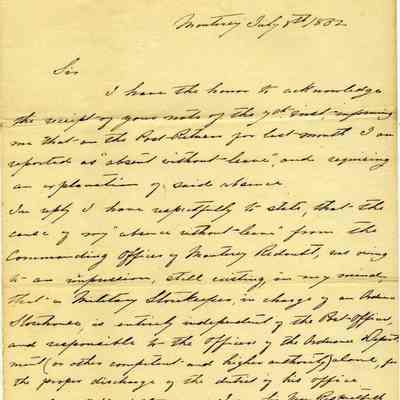 Monterey July 8th 1852
Sir
I have the honor to acknowledge
the receipt of your note of the 7th inst, informing
me that on the Post Return for last month I am
reported as "absent without leave", and requiring
an explanation of said absence.
In reply I have respectfully to state, that the
cause of my "absence without leave" from the
Commanding Officer of Monterey Redoubt, was owing
to an impression, still existing, in my mind,
that a Military Storekeeper, in charge of an Ordnance
Storehouse, is entirely independent of the Post Officer,
and responsible to the Officers of the Ordnance Depart
ment (or other competent and higher authority) alone, for
the proper discharge of the duties of his office